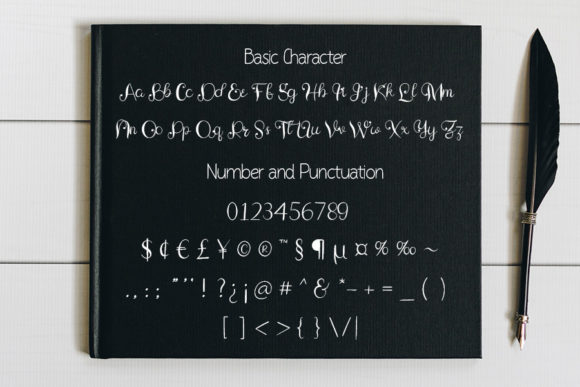 Basic Character
Aa Bb Cc Dd Ee Ff Gg Hh Ii Jj Kk Ll Mm
Nn Oo Pp Qq Rr Ss Tt Uu Vv Ww Xx Yy Zz
Number and Punctuation
0123456789
$ ¢ € £ ¥ © ® ™ § ¶ µ ¤ % ‰ ~
. , : ; " ' " ! ? ¿ ¡ @ # ^ & * – + = _ ( )
[ ] < > { } \ / |